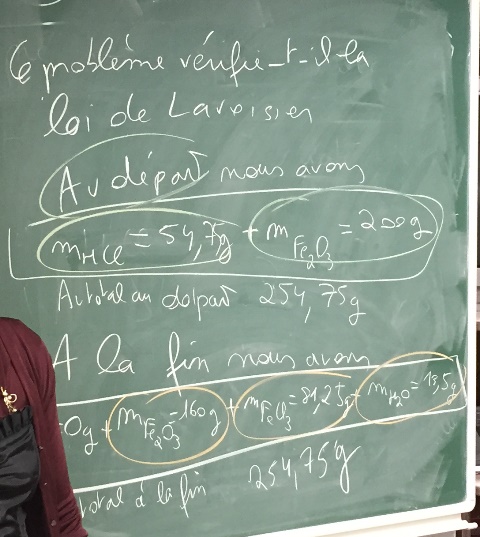 Ce problème vérifie-t-il la
loi de Lavoisier
Au départ nous avons
mHCl = 54,75g + mFe₂O₃ = 200g
Au total au départ 254,75g
A la fin nous avons
0g + mFe₂O₃ = 160g + mFeCl₃ = 81,25g + mH₂O = 13,5g
total à la fin 254,75g